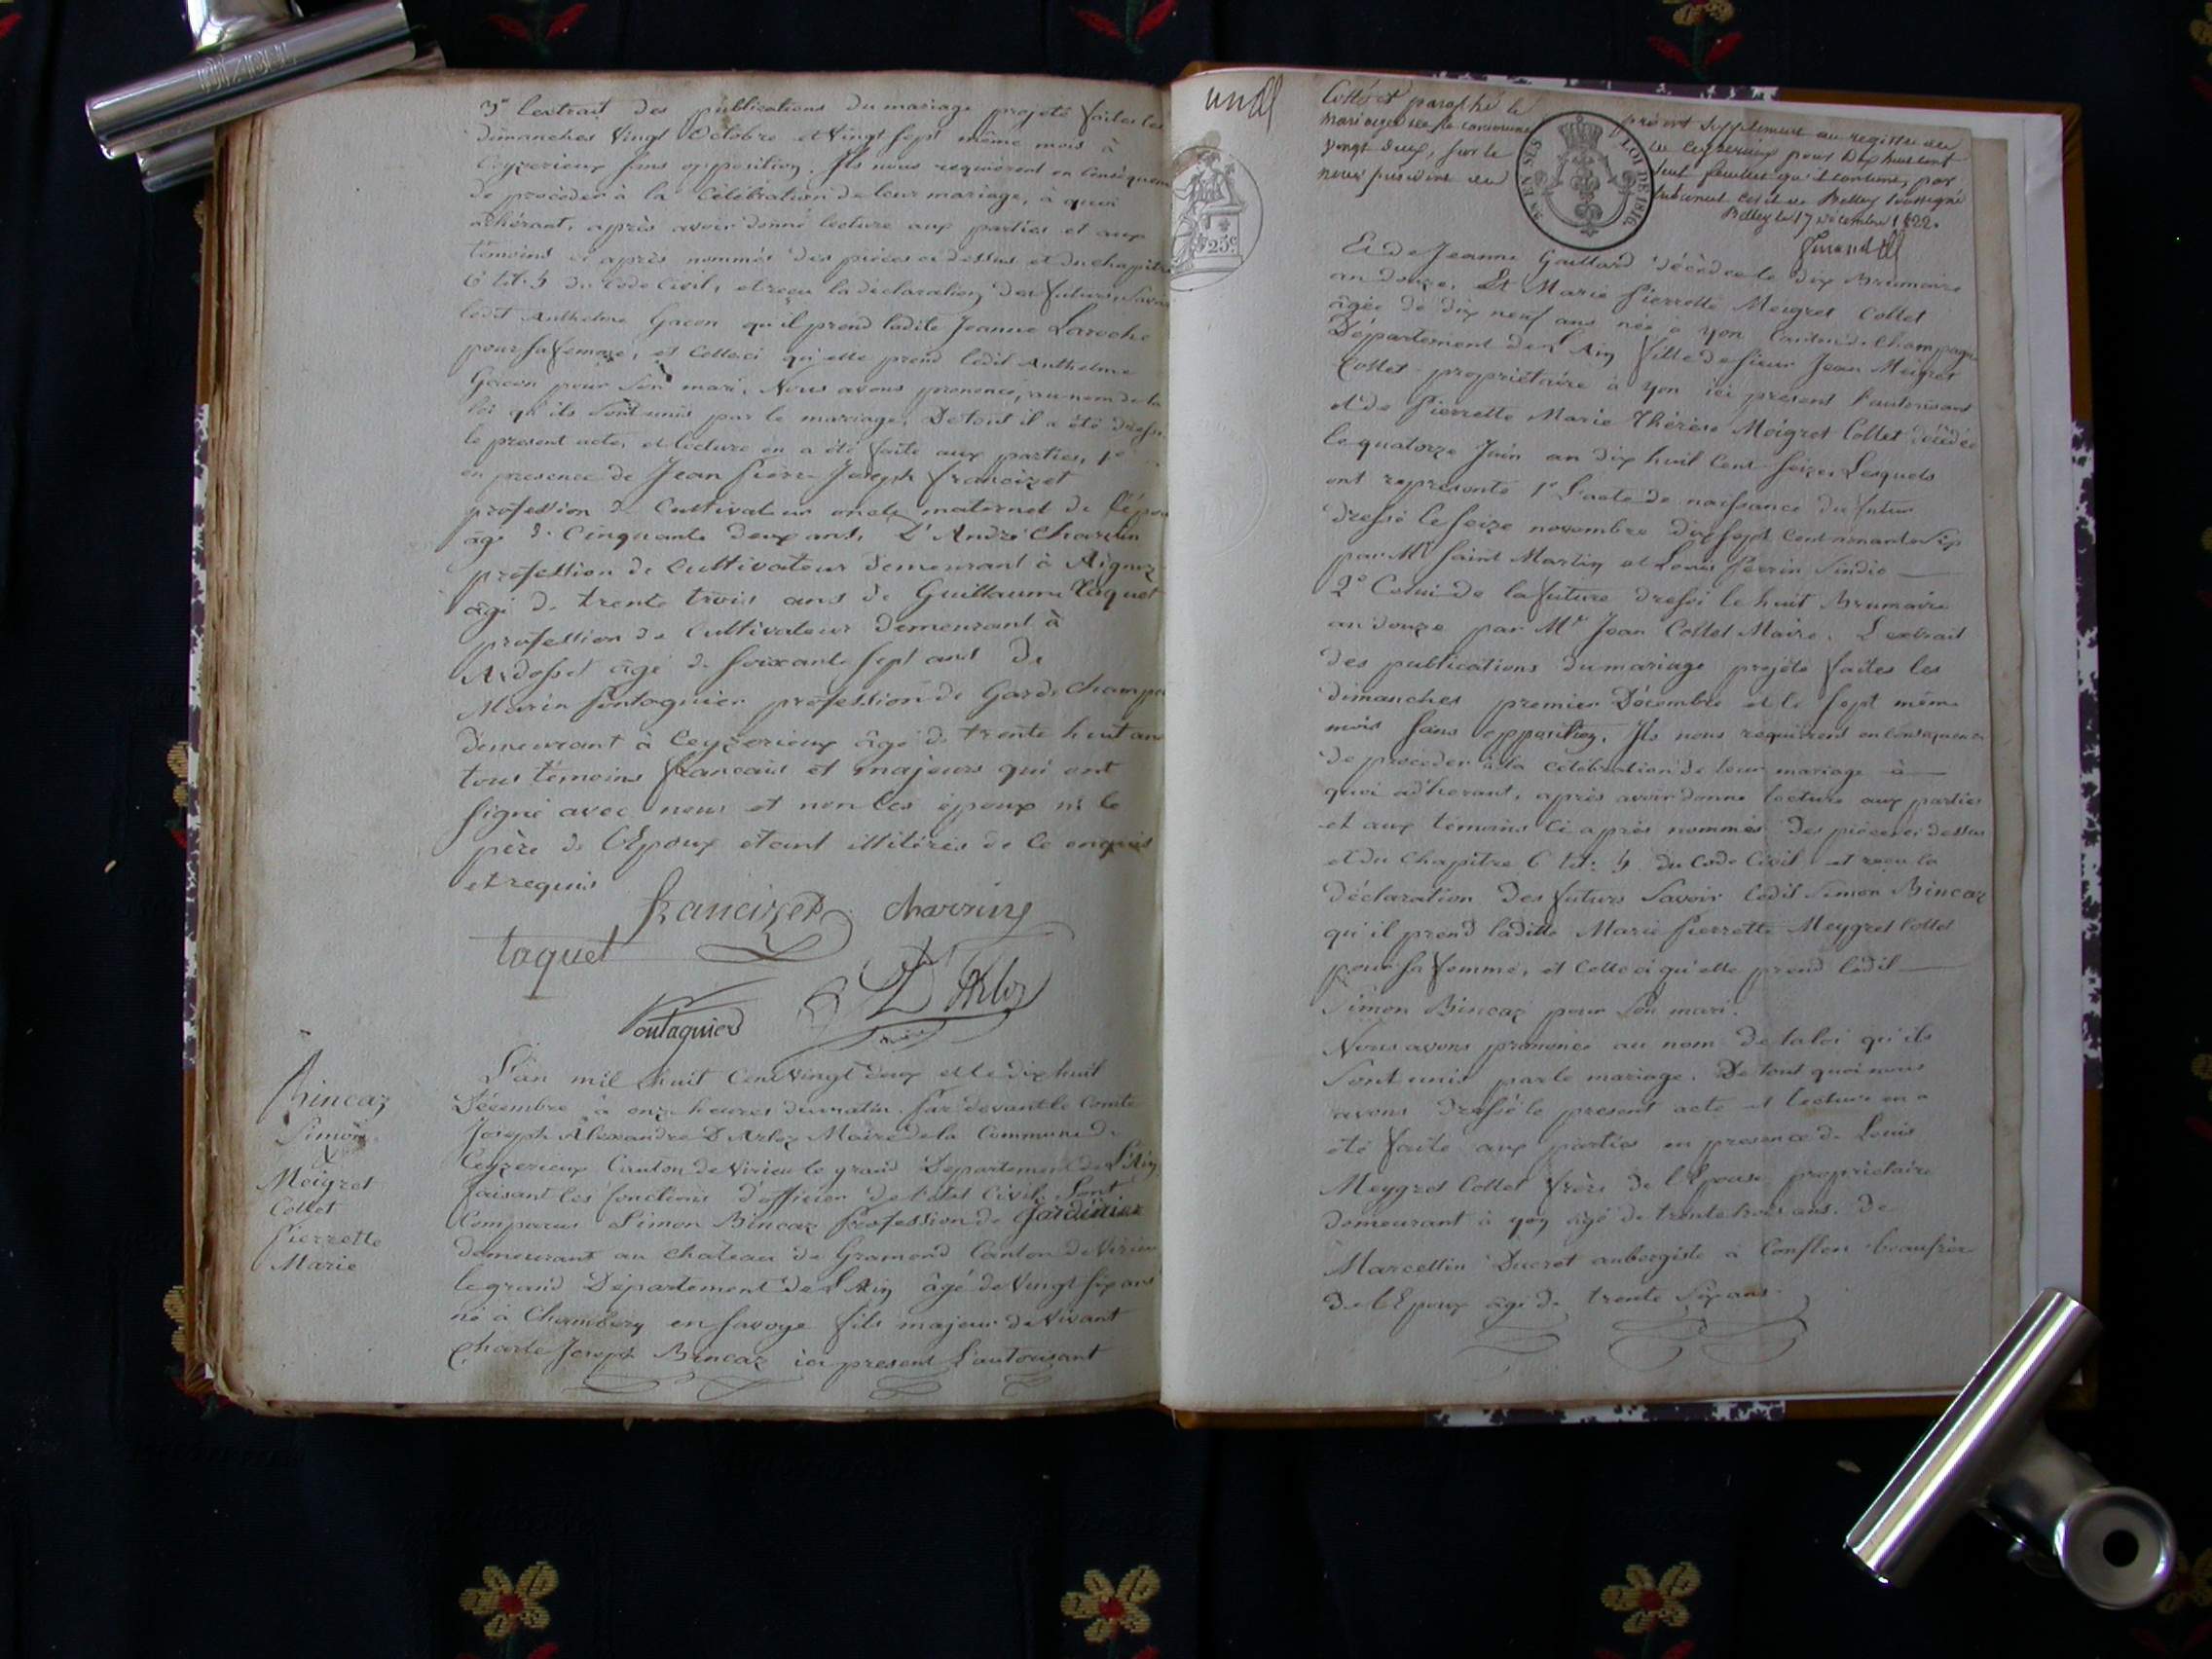 3° l'extrait des publications du mariage projeté faites les
dimanches vingt Octobre et vingt sept même mois à
Ceyzerieux sans opposition. Ils nous requièrent en conséquence
de procéder à la célébration de leur mariage, à quoi
adhérant, après avoir donné lecture aux parties et aux
témoins ci après nommés des pièces ci dessus et du chapitre
6 tit: 5 du Code Civil, et reçu la déclaration des futurs, Savoir
ledit Anthelme Gacon qu'il prend ladite Jeanne Laroche
pour sa femme, et celle ci qu'elle prend ledit Anthelme
Gacon pour son mari. Nous avons prononcé, au nom de la
loi qu'ils sont unis par le mariage. De tout il a été dressé
le present acte, et lecture en a été faite aux parties, 1°
en presence de Jean Pierre Joseph francizet
profession de Cultivateur oncle maternel de l'épou
âgé de Cinquante deux ans, 2° André Charvin
profession de Cultivateur demeurant à Aignoz
âgé de trente trois ans de Guillaume Taquet
profession de Cultivateur demeurant à
Ardosset âgé de soixante sept ans de
Marin fontaguier profession de Garde Champe
demeurant à Ceyzerieux âgé de trente huit ans
tous témoins francais et majeurs qui ont
signé avec nous et non les époux ni le
père de l'Epoux étant illitérés de ce enquis
et requis
francizet charvin
taquet
D'Arloz
foutaguier
Bincaz
Simon
&
Meigret
Collet
Pierrette
Marie
L'an mil huit cent vingt deux et le dix huit
Décembre à onze heures du matin. Par devant le Comte
Joseph Alexandre D'Arloz Maire de la Commune de
Ceyzerieux Canton de Virieu le grand Departement de l'Ain
faisant les fonctions d'officier de l'état Civil. Sont
Comparus Simon Bincaz profession de Jardinier
demeurant au chateau de Gramond Canton de Virieu
le grand Département de l'Ain âgé de vingt six ans
né à Chambéry en Savoye fils majeur de vivant
Charle Joseph Bincaz ici present l'autorisant
un
Cotté et paraphé le present supplement au registre des
mariages de la commune de Ceyzerieux pour dix huit cent
vingt deux, sur le seul feuillet qu'il contient, par
nous president du tribunal civil de Belley soussigné
Belley le 17 décembre 1822.
25c
EN SUS LOI DE 1816
Et de Jeanne Gaillard décédée le dix Brumaire
an douze. Et Marie Pierrette Meigret Collet
âgée de dix neuf ans née à yon Canton de Champagne
Département de l'Ain fille de sieur Jean Meigret
Collet propriétaire à yon ici présent l'autorisant
et de Pierrette Marie Thérèse Meigret Collet décédée
le quatorze Juin an dix huit cent seize. Lesquels
ont représenté 1° L'acte de naissance du futur
dressé le seize novembre dix sept cent nonante six
par Mr Saint Martin et Louis Perrin Sindic
2° Celui de la future dressé le huit Brumaire
an douze par Mr Jean Collet Maire. L'extrait
des publications du mariage projeté faites les
dimanches premier Décembre et le sept même
mois sans opposition. Ils nous requièrent en conséquence
de procéder à la célébration de leur mariage à
quoi adherant, après avoir donné lecture aux parties
et aux témoins ci après nommés des pièces ci dessus
et du chapitre 6 tit: 5 du Code Civil et reçu la
déclaration des futurs Savoir ledit Simon Bincaz
qu'il prend ladite Marie Pierrette Meygret Collet
pour sa femme, et celle ci qu'elle prend ledit
Simon Bincaz pour son mari.
Nous avons prononcé au nom de la loi qu'ils
sont unis par le mariage. De tout quoi nous
avons dressé le present acte et lecture en a
été faite aux parties en presence de Louis
Meygret Collet frère de l'Epouse propriétaire
demeurant à yon âgé de trente trois ans. de
Marcellin Ducret aubergiste à Conflen beaufrère
de l'Epoux âgé de trente six ans